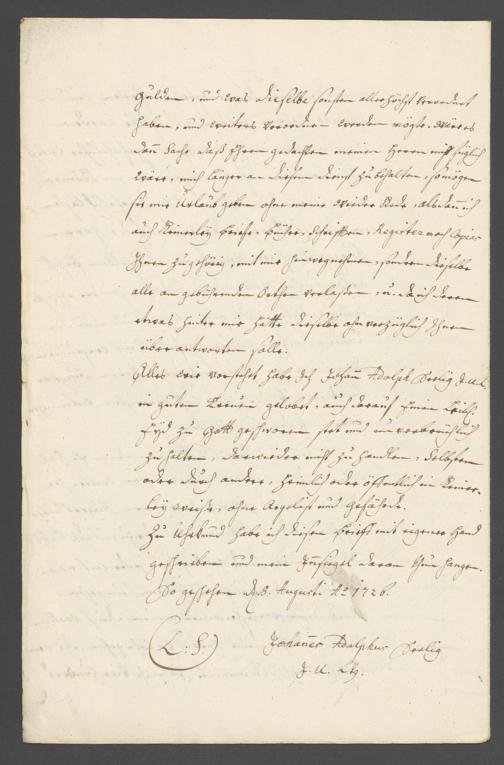 gulden, und was dieselbe sonsten allerhöchst verordnet
haben, und weiters verordnen werden mögte, wäre es
dann Sache daß Ihnen gedachten meinen Herrn nicht füglich
wäre, mich länger an diesem dienst zu behalten, so mögen
sie mir Urlaub geben ohne meine wieder Rede, alsdann ich
auch keinerley briefe, bücher, schrifften, Register noch Copias
Ihnen zugehörig, mit mir hinwegnehmen, sondern dieselbe
alle an gebührenden Orthen verlassen, u. da ich deren
etwas hinter mir hätte dieselbe ohnverzüglich Ihnen
überantworten solle.
Alles wie vorstehet habe Ich Johann Adolph Seelig J.U.L.
in guten Treuen gelobet, auch darauf einen leibl.
Eyd zu Gott geschworen stet und unverbrüchlich
zu halten, darwieder nicht zu handlen, selbsten
oder durch andere, heimlich oder öffentlich in keiner-
ley weiße, ohne Argelist und gefährde.
Zu Uhrkund habe ich diesen brieff mit eigener Hand
geschrieben und mein Insiegel daran thun hangen.
So geschehen d. 3. Augusti Ao 1726.
(L. S.) Johannes Adolphus Seelig
J. U. Lt.